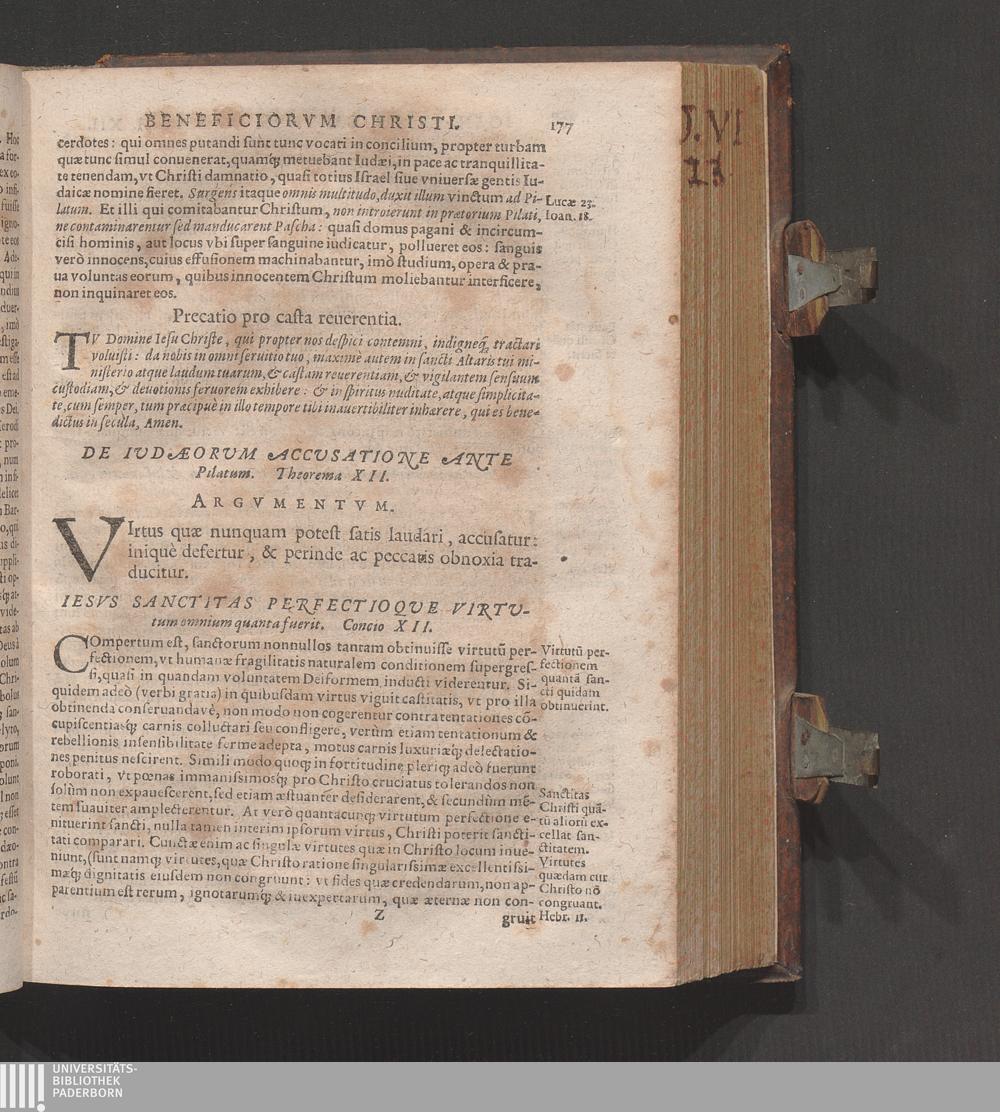 BENEFICIORVM CHRISTI. 177
cerdotes: qui omnes putandi sunt tunc vocati in concilium, propter turbam
quæ tunc simul conuenerat, quamq́; metuebant Iudæi, in pace ac tranquillita-
te tenendam, vt Christi damnatio, quasi totius Israel siue vniuersæ gentis Iu-
daicæ nomine fieret. Surgens itaque omnis multitudo, duxit illum vinctum ad Pi-
latum. Et illi qui comitabantur Christum, non introierunt in prætorium Pilati,
ne contaminarentur sed manducarent Pascha: quasi domus pagani & incircum-
cisi hominis, aut locus vbi super sanguine iudicatur, pollueret eos: sanguis
verò innocens, cuius effusionem machinabantur, imò studium, opera & pra-
ua voluntas eorum, quibus innocentem Christum moliebantur interficere,
non inquinaret eos.
Lucæ 23.
Ioan. 18.
Precatio pro casta reuerentia.
TV Domine Iesu Christe, qui propter nos despici contemni, indigneq́; tractari
voluisti: da nobis in omni seruitio tuo, maximè autem in sancti Altaris tui mi-
nisterio atque laudum tuarum, & castam reuerentiam, & vigilantem sensuum
custodiam, & deuotionis feruorem exhibere: & in spiritus nuditate, atque simplicita-
te, cum semper, tum præcipuè in illo tempore tibi inauertibiliter inhærere, qui es bene-
dictus in secula, Amen.
DE IVDÆORVM ACCVSATIONE ANTE
Pilatum. Theorema XII.
ARGVMENTVM.
VIrtus quæ nunquam potest satis laudari, accusatur:
iniquè defertur, & perinde ac peccatis obnoxia tra-
ducitur.
IESVS SANCTITAS PERFECTIOQVE VIRTV-
tum omnium quanta fuerit. Concio XII.
COmpertum est, sanctorum nonnullos tantam obtinuisse virtutũ per-
fectionem, vt humanæ fragilitatis naturalem conditionem supergres-
si, quasi in quandam voluntatem Deiformem inducti viderentur. Si-
quidem adeò (verbi gratia) in quibusdam virtus viguit castitatis, vt pro illa
obtinenda conseruandavè, non modo non cogerentur contra tentationes cõ-
cupiscentiasq́; carnis colluctari seu confligere, verùm etiam tentationum &
rebellionis insensibilitate ferme adepta, motus carnis luxuriæq́; delectatio-
nes penitus nescirent. Simili modo quoq; in fortitudine pleriq; adeò fuerunt
roborati, vt pœnas immanissimosq́; pro Christo cruciatus tolerandos non
solùm non expauescerent, sed etiam æstuanter desiderarent, & secundùm mẽ-
tem suauiter amplecterentur. At verò quantacunq; virtutum perfectione e-
nituerint sancti, nulla tamen interim ipsorum virtus, Christi poterit sancti-
tati comparari. Cunctæ enim ac singulæ virtutes quæ in Christo locum inue-
niunt, (sunt namq; virtutes, quæ Christo ratione singularissimæ excellentissi-
mæq́; dignitatis eiusdem non congruunt: vt fides quæ credendarum, non ap-
parentium est rerum, ignotarumq́; & inexpertarum, quæ æternæ non con-
Z gruit
Virtutũ per-
fectionem
quantã san-
cti quidam
obtinuerint.
Sanctitas
Christi quã-
tũ aliorũ ex-
cellat san-
ctitatem.
Virtutes
quædam cur
Christo nõ
congruant.
Hebr. 11.
UNIVERSITÄTS-
BIBLIOTHEK
PADERBORN